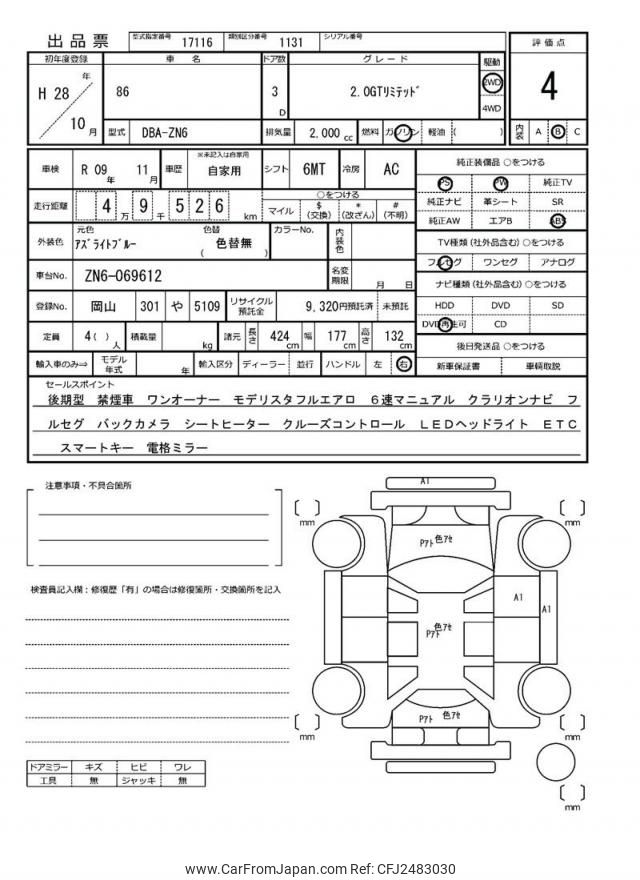 出品票 型式指定番号 17116 類別区分番号 1131 シリアル番号
初年度登録 車名 ドア数 グレード 駆動 評価点
H 28 年 10 月 86 3 D 2.0GTリミテッド 2WD 4WD 4
型式 DBA-ZN6 排気量 2,000 cc 燃料 ガソリン 軽油 ( ) 内装 A B C
車検 R 09 年 11 月 車歴 ※未記入は自家用 自家用 シフト 6MT 冷房 AC
走行距離 4 万 9 千 5 2 6 km ○をつける マイル $ (交換) * (改ざん) # (不明)
外装色 元色 アズライトブルー 色替 ( 色替無 ) カラーNo. 内装色
車台No. ZN6-069612 名変期限 月 日
登録No. 岡山 301 や 5109 リサイクル預託金 9,320円預託済 未預託
定員 4 ( ) 人 積載量 kg 諸元 長さ 424 cm 幅 177 cm 高さ 132 cm
輸入車のみ⇒ モデル年式 年 輸入区分 ディーラー 並行 ハンドル 左 右
純正装備品 ○をつける
PS PW 純正TV
純正ナビ 革シート SR
純正AW エアB ABS
TV種類(社外品含む)○をつける
フルセグ ワンセグ アナログ
ナビ種類(社外品含む)○をつける
HDD DVD SD
DVD再生可 CD
後日発送品 ○をつける
新車保証書 車輌取説
セールスポイント
後期型 禁煙車 ワンオーナー モデリスタフルエアロ 6速マニュアル クラリオンナビ フ
ルセグ バックカメラ シートヒーター クルーズコントロール LEDヘッドライト ETC
スマートキー 電格ミラー
注意事項・不具合箇所
検査員記入欄:修復歴「有」の場合は修復箇所・交換箇所を記入
ドアミラー キズ ヒビ ワレ
工具 無 ジャッキ 無
A1
mm mm
Pアト 色アセ
A1 A1
Pアト 色アセ
Pアト 色アセ
mm mm
mm
www.CarFromJapan.com Ref: CFJ2483030